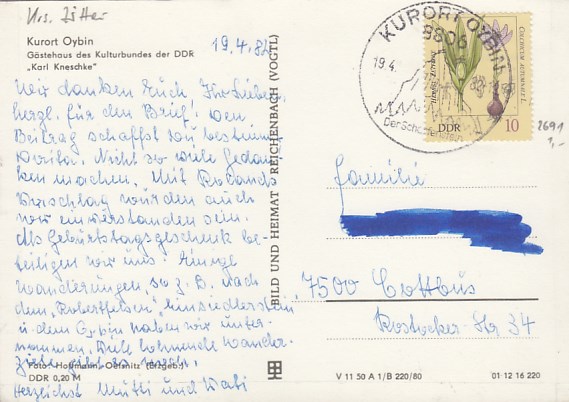 Kurort Oybin
Gästehaus des Kulturbundes der DDR
„Karl Kneschke"
19.4.82
Wir danken Euch Ihr Lieben,
herzl. für den Brief! Den
Beitrag schaffst Du bestimmt
Nicht so viele Gedan-
ken machen. Mit Rolands
Vorschlag würden auch
wir einverstanden sein.
Als Geburtstagsgeschenk be-
teiligen wir uns. Einige
Wanderungen so z. B. nach
dem „Robertfelsen", Einsiedlerstein
u. dem Oybin haben wir unter-
nommen. Viele lohnende Wander-
ziele gibt es noch.
Herzlichst Mutti und Vati
Foto: Hoffmann, Oelsnitz (Erzgeb.)
DDR 0,20 M
BILD UND HEIMAT REICHENBACH (VOGTL)
KURORT OYBIN
8806
19.4.
Der Scharfenstein
DDR
10
2691
1,-
Familie
7500 Cottbus
Rostocker-Str 34
V 11 50 A 1/B 220/80
01 12 16 220